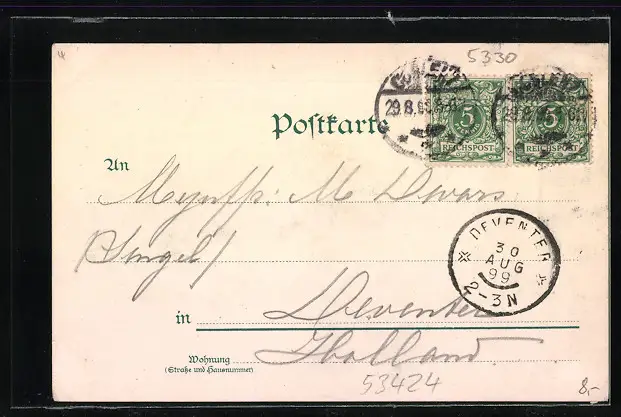 5330
COBLENZ
29.8.99
COBLENZ
29.8.99
5
REICHSPOST
5
REICHSPOST
Postkarte
An
M Dwars
(Singel)
DEVENTER
30
AUG
99
2-3N
in Deventer
Holland
Wohnung
(Straße und Hausnummer)
53424
8,-